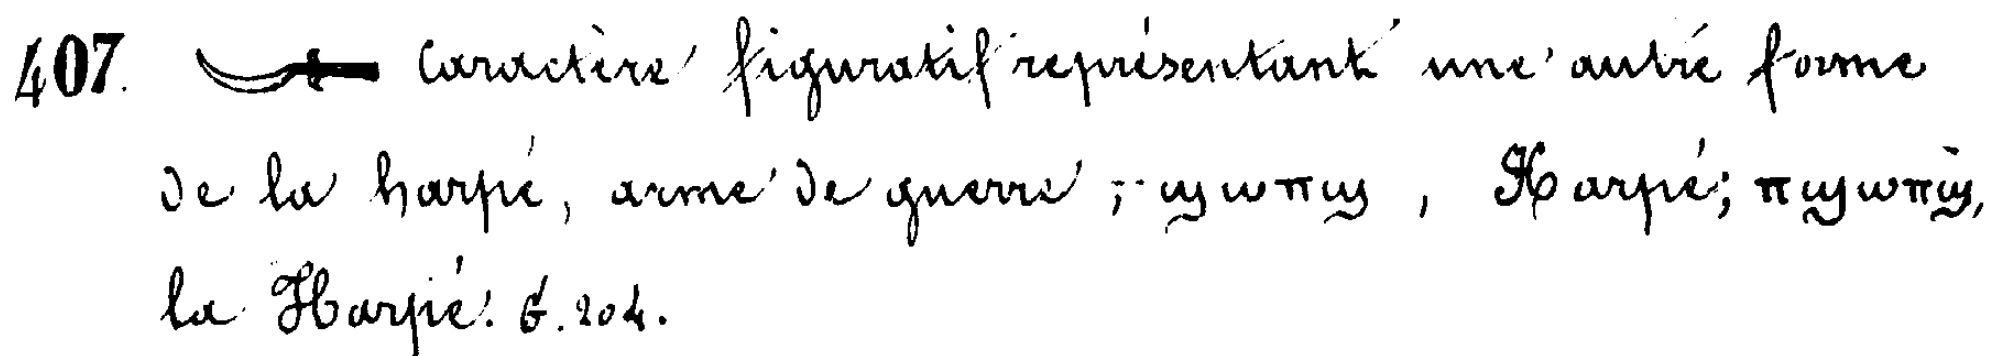 407. Caractère figuratif représentant une autre forme
de la harpé, arme de guerre ; ϣωπϣ, Harpé; πϣωπϣ,
la Harpé. G. 204.